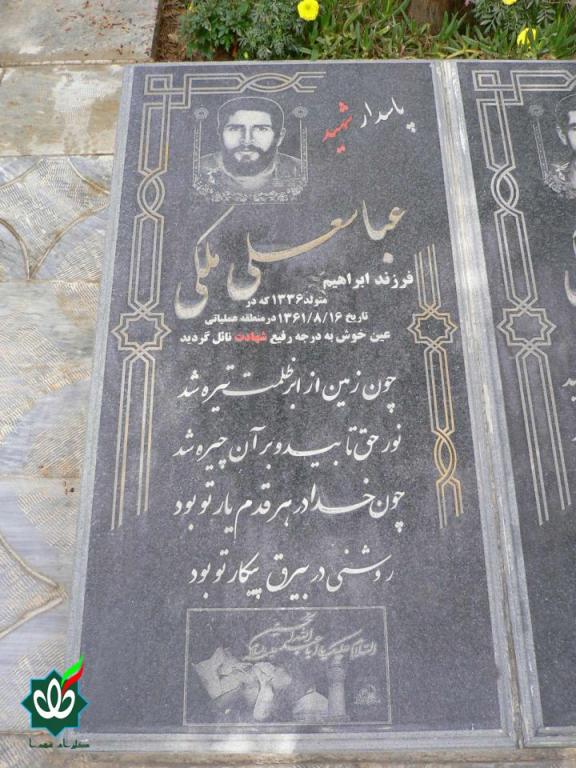 پاسدار شهید
عباسعلی ملکی
فرزند ابراهیم
متولد ۱۳۳۶ که در
تاریخ ۱۳۶۱/۸/۱۶ در منطقه عملیاتی
عین خوش به درجه رفیع شهادت نائل گردید
چون زمین از ابر ظلمت تیره شد
نور حق تابید و بر آن چیره شد
چون خدا در هر قدم یار تو بود
روشنی در بیرق پیکار تو بود
السلام علیک یا اباعبدالله الحسین
گلزار شهدا